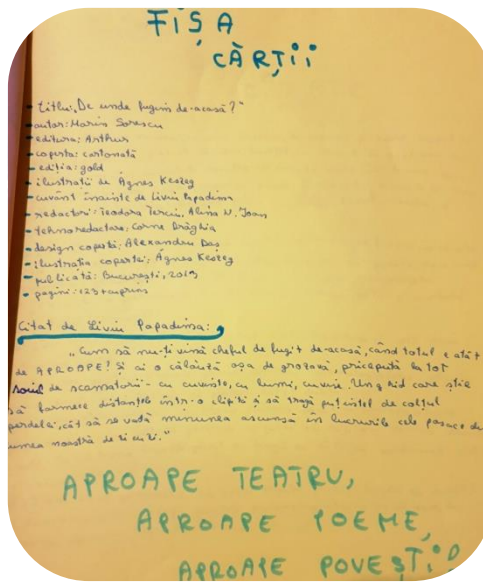 FIȘA
CĂRȚII
- titlu: „De unde fugim de-acasă?"
- autor: Marin Sorescu
- editura: Arthur
- coperta: cartonată
- ediția: gold
- ilustrații de Ágnes Keszeg
- cuvânt înainte de Liviu Papadima
- redactori: Teodora Terciu, Alina N. Ioan
- tehnoredactare, Corina Drăghia
- design copertă; Alexandru Daș
- ilustrația copertei; Ágnes Keszeg
- publicată: București, 2019
- pagini: 123 + cuprins
Citat de Liviu Papadima:
„Cum să nu-ți vină cheful de fugit de-acasă, când totul e atât
de APROAPE! Și ai o călăuză așa de grozavă, pricepută la tot
soiul de scamatorii - cu cuvinte, cu lumi, cu vise. Un ghid care știe
să farmece distanțele într-o clipită și să tragă puțintel de colțul
perdelei, cât să se vadă minunea ascunsă în lucrurile cele
lumea noastră de zi cu zi."
APROAPE TEATRU,
APROAPE POEME,
APROAPE POVEȘTI!